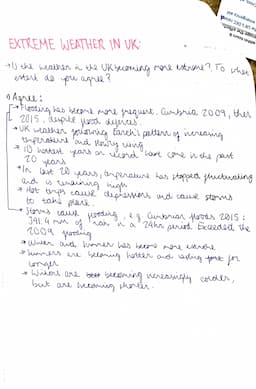 EXTREME WEATHER IN UK:
→ Is the weather in the UK becoming more extreme? To what
extent do you agree?
1) Agree:
→ Flooding has become more frequent. Cumbria 2009, then
2015, despite flood defences.
• UK weather following Earth's pattern of increasing
temperature and
• 10 hottest years on record have come in the past
20 years
• In last 20 years, temperature has stopped fluctuating
and is remaining high
• Hot temps cause depressions and cause storms
to take place.
→ Storms cause flooding, e.g. Cumbrian floods 2015:
341.4 mm of rain in a 24hr period. Exceeded the
2009 flooding
→ Winter and summer has become more extreme
• Summers are becoming hotter and lasting for
longer
• Winters are becoming increasingly colder,
but are becoming shorter.